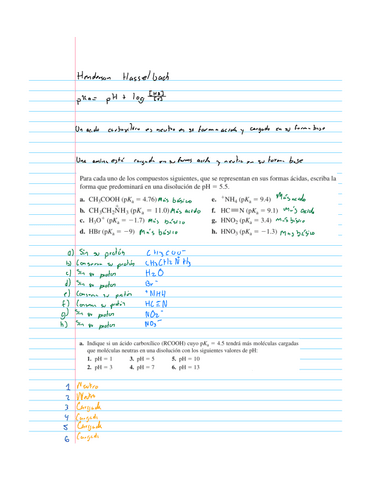 Henderson Hasselbach
pKa = pH + log [HA]/[A⁻]
Un acido carboxilico es neutro en su forma acida y cargado en su forma base
Una amina está cargada en su forma acida y neutra en su forma base
Para cada uno de los compuestos siguientes, que se representan en sus formas ácidas, escriba la
forma que predominará en una disolución de pH = 5.5.
a. CH₃COOH (pKₐ = 4.76) Más básico e. ⁺NH₄ (pKₐ = 9.4) Más acido
b. CH₃CH₂N⁺H₃ (pKₐ = 11.0) Más acido f. HC≡N (pKₐ = 9.1) más acido
c. H₃O⁺ (pKₐ = −1.7) Más básico g. HNO₂ (pKₐ = 3.4) más básico
d. HBr (pKₐ = −9) Más básico h. HNO₃ (pKₐ = −1.3) Más básico
a) Sin su protón CH₃COO⁻
b) Conserva su protón
c) Sin su proton H₂O
d) Sin su proton Br⁻
e) Conserva su protón ⁺NH4
f) Conserva su proton HC≡N
g) Sin su protón NO₂⁻
h) Sin su proton NO₃⁻
a. Indique si un ácido carboxílico (RCOOH) cuyo pKₐ = 4.5 tendrá más moléculas cargadas
que moléculas neutras en una disolución con los siguientes valores de pH:
1. pH = 1 3. pH = 5 5. pH = 10
2. pH = 3 4. pH = 7 6. pH = 13
1 Neutro
2 Neutro
3 Cargada
4 Cargada
5 Cargada
6 Cargada